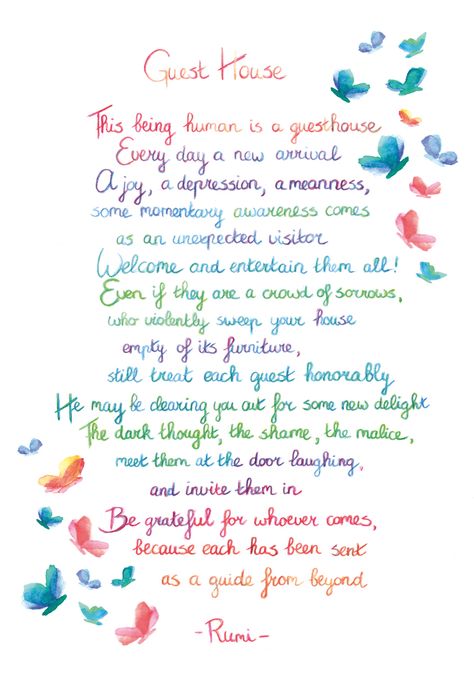 Guest House
This being human is a guesthouse
Every day a new arrival
A joy, a depression, a meanness,
some momentary awareness comes
as an unexpected visitor
Welcome and entertain them all!
Even if they are a crowd of sorrows,
who violently sweep your house
empty of its furniture,
still treat each guest honorably
He may be clearing you out for some new delight
The dark thought, the shame, the malice,
meet them at the door laughing,
and invite them in
Be grateful for whoever comes,
because each has been sent
as a guide from beyond
- Rumi -